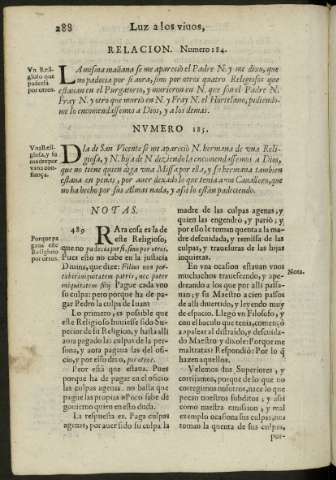 288
Luz a los viuos,
RELACION. Numero 184.
Vn Reli-
gioso que
padecia
por otros.
LA mesma mañana se me apareciò el Padre N. y me dixo, que
no padecia por si aora, sino por otros quatro Religiosos que
estavan en el Purgatorio, y murieron en N. que son el Padre N.
Fray N. y otro que muriò en N. y Fray N. el Hortelano, pidiendo-
me lo encomendassemos a Dios, y a los demas.
NVMERO 185.
Dia de San Vicente se me apareciò N. hermana de una Reli-
giosa, y N. hija de N. diziendo la encomendassemos a Dios,
que no tiene quien diga una Missa por ella, y su hermana tambien
estava en penas, por aver dexado lo que tenia a un Cavallero, que
no ha hecho por sus Almas nada, y assi lo están padeciendo.
NOTAS.
489
Porque pa
gava este
Religioso
por otros.
RAra cosa es la de
este Religioso,
que no padecia por si, sino por otros.
Pues esto no cabe en la justicia
Divina, que dize: Filius non por-
tabit iniquitatem patris, nec pater
iniquitatem filij. Pague cada vno
su culpa: pero porque ha de pa-
gar Pedro la culpa de Iuan?
Lo primero, es possible que
este Religioso huuiesse sido Su-
perior de su Religion, y hasta alli
aora pagado las culpas de la per-
sona, y aora pagaua las del ofi-
cio, y por esso dixo, por otros.
Peor está que estava. Pues
porque ha de pagar en el oficio
las culpas agenas? no basta que
pague las propias? Poco sabe de
gouierno quien en esto duda.
La respuesta es: Paga culpas
agenas, por auer sido su culpa la
madre de las culpas agenas, y
quien las engendrò, y pariò; y
por esso le toman quenta a la ma-
dre descuidada, y remissa de las
culpas, y trauesuras de las hijas
inquietas.
Nota.
En vna ocasion estauan vnos
muchachos trauesseando, y ape-
dreando a los que por alli passa-
uan; y su Maestro a cien passos
de alli diuertido, y leyendo muy
de espacio. Llegò vn Filosofo, y
con el baculo que tenia, començò
a apalear al distraido, y descuida-
do Maestro y dixole: Porque me
maltratas? Respondiòle: Por lo q̃
hazen aquellos.
Velemos, Superiores, y
corrijamos, porque de lo que no
corregimos nosotros, nace lo que
pecan nuestros subditos; y assi
como nuestra omission, y mal
exemplo ocasiona sus culpas, nos
toman la quenta de sus culpas,
por-